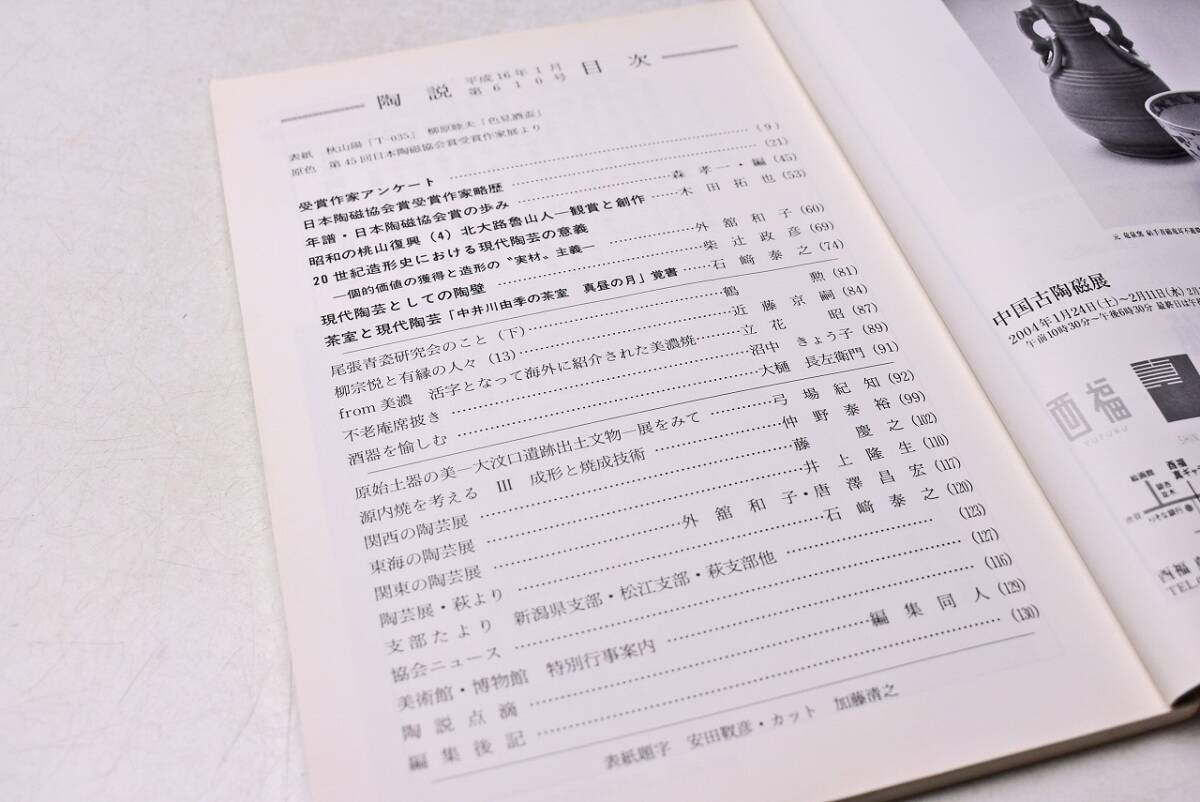 陶説 平成16年1月 第610号 目次
表紙 秋山陽「T-035」 柳原睦夫「色見酒盃」
原色 第45回日本陶磁協会賞受賞作家展より
受賞作家アンケート (9)
日本陶磁協会賞受賞作家略歴 (21)
年譜・日本陶磁協会賞の歩み 森孝一・編 (45)
昭和の桃山復興(4) 北大路魯山人―観賞と創作 木田拓也 (53)
20世紀造形史における現代陶芸の意義
―個的価値の獲得と造形の〝実材〟主義― 外舘和子 (60)
現代陶芸としての陶壁 柴辻政彦 (69)
茶室と現代陶芸「中井川由季の茶室 真昼の月」覚書 石﨑泰之 (74)
尾張青瓷研究会のこと(下) 鶴勲 (81)
柳宗悦と有縁の人々(13) 近藤京嗣 (84)
from美濃 活字となって海外に紹介された美濃焼 立花昭 (87)
不老庵席披き 沼中きょう子 (89)
酒器を愉しむ 大樋長左衛門 (91)
原始土器の美―大汶口遺跡出土文物―展をみて 弓場紀知 (92)
源内焼を考える Ⅲ 成形と焼成技術 仲野泰裕 (99)
関西の陶芸展 藤慶之 (102)
東海の陶芸展 井上隆生 (110)
関東の陶芸展 外舘和子・唐澤昌宏 (117)
陶芸展・萩より 石﨑泰之 (120)
支部たより 新潟県支部・松江支部・萩支部他 (123)
協会ニュース (127)
美術館・博物館 特別行事案内 (116)
陶説点滴 編集同人 (129)
編集後記 (130)
表紙題字 安田靫彦・カット 加藤清之
中国古陶磁展
2004年1月24日(土)~2月11日(水)
午前10時30分~午後6時30分
西福